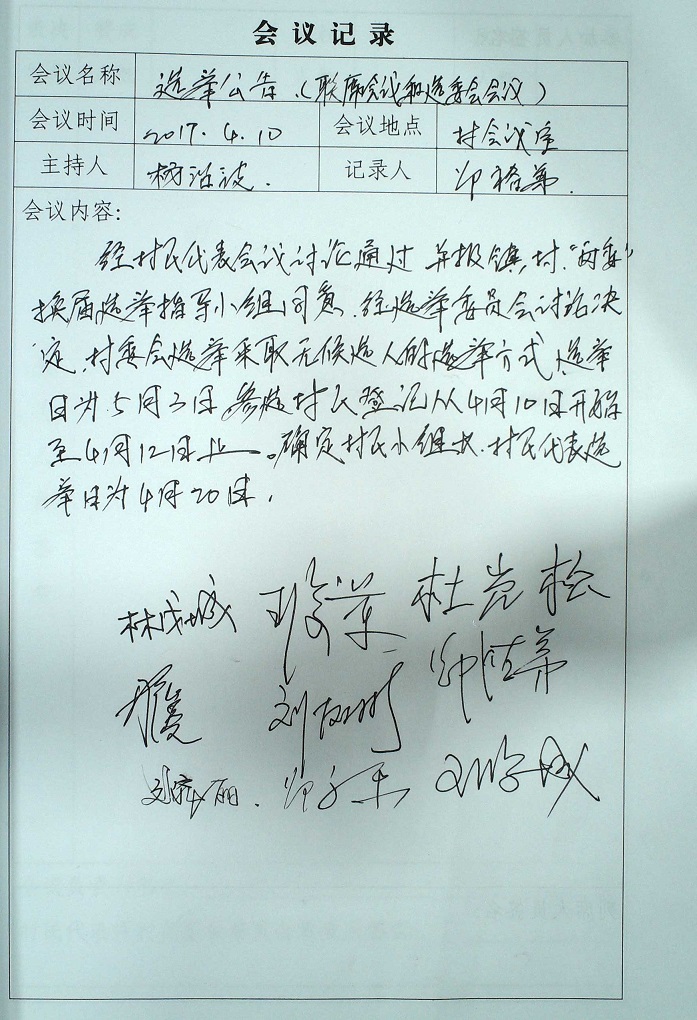 会议记录
会议名称 选举公告.(联席会议和选委会会议)
会议时间 2017.4.10 会议地点 村会议室
主持人 记录人
会议内容:
经村民代表会议讨论通过 并报镇,村.“两委”
换届选举指导小组同意.经选举委员会讨论决
定,村委会选举采取无候选人的选举方式,选举
日为5月3日 参选村民登记从4月10日开始
至4月12日止。确定村民小组长.村民代表选
举日为4月20日.
林成城 杜
刘 丽.